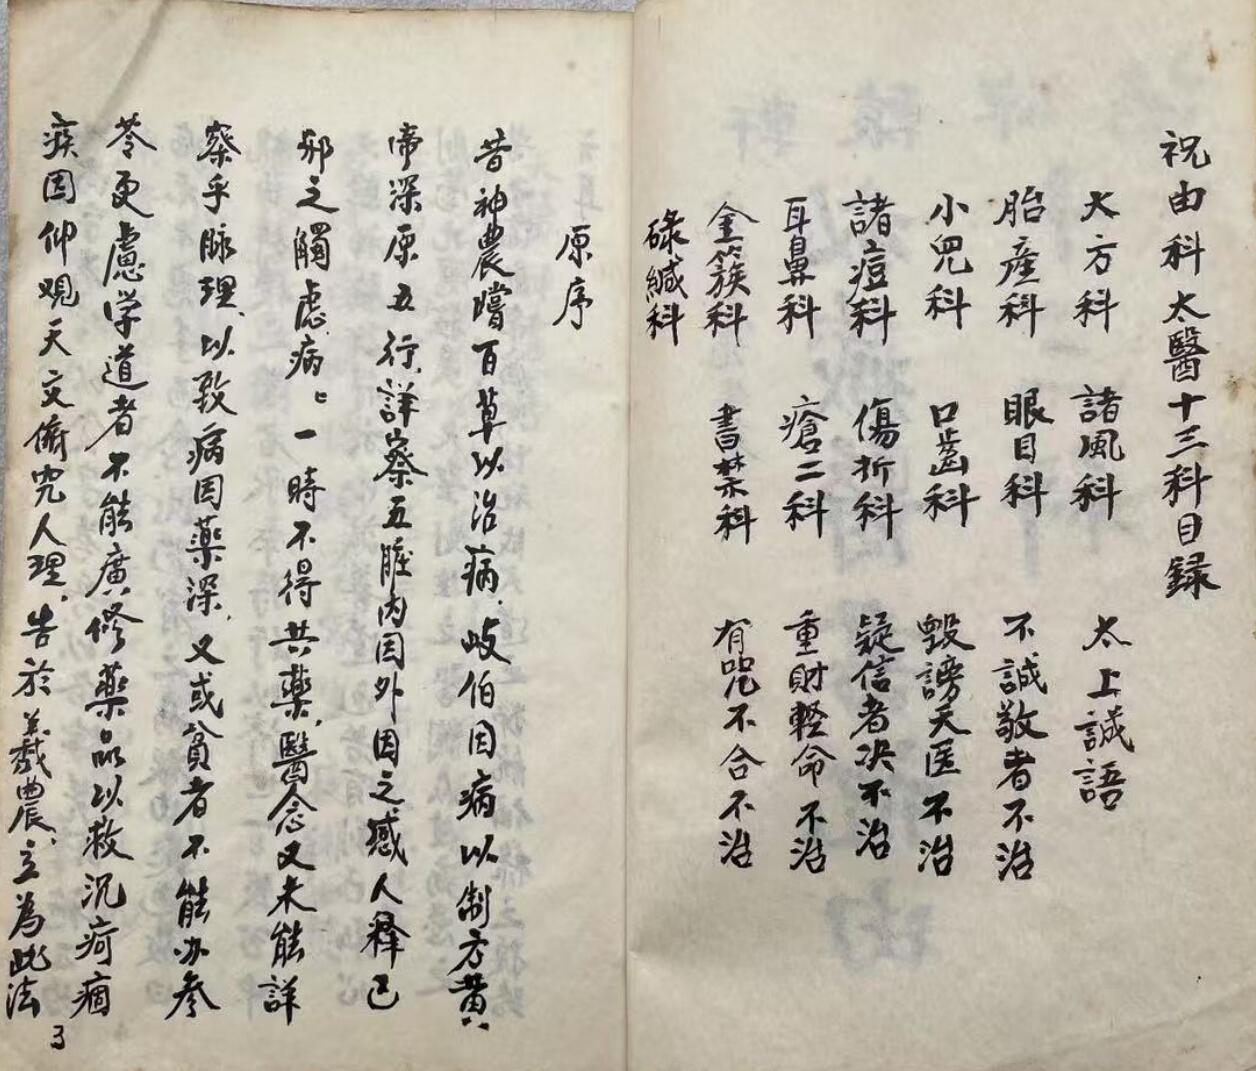 祝由科太醫十三科目録
大方科 諸風科 太上誠語
胎産科 眼目科 不誠敬者不治
小兒科 口齒科 毀謗天医不治
諸痘科 傷折科 疑信者决不治
耳鼻科 瘡二科 重財軽命不治
金簇科 書禁科 有咒不合不治
碌緘科
原序
昔神農嚐百草以治病岐伯因病以制方黄
帝深原五行詳察五臟内因外因之感人释已
邪之觸虑病〻一時不得共藥醫念又未能詳
察乎脉理以致病因藥深又或貧者不能办參
苓更慮学道者不能廣修藥品以救沉疴痼
疾因仰观天文俯究人理告於羲農立為此法
3